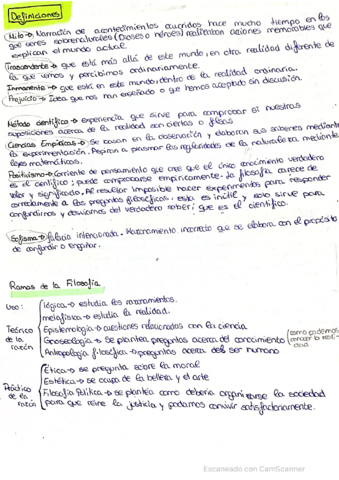 Definiciones
Mito → Narración de acontecimientos ocurridos hace mucho tiempo en los
que seres sobrenaturales (Dioses o héroes) realizaban acciones memorables que
explican el mundo actual.
Trascendente → que está más allá de este mundo, en otra realidad diferente de
la que vemos y percibimos ordinariamente.
Inmanente → que está en este mundo, dentro de la realidad ordinaria.
Prejuicio → Idea que nos han enseñado o que hemos aceptado sin discusión.
Método científico → experiencia que sirve para comprobar si nuestras
suposiciones acerca de la realidad son ciertas o falsas
Ciencias Empíricas → Se basan en la observación y elaboran sus saberes mediante
la experimentación. Aspiran a plasmar las regularidades de la naturaleza mediante
leyes matemáticas.
Positivismo → Corriente de pensamiento que cree que el único conocimiento verdadero
es el científico; puede comprobarse empíricamente. La filosofía carece de
valor y significado. Al resultar imposible hacer experimentos para responder
correctamente a las preguntas filosóficas, esta es inútil y solo sirve para
confundirnos y desviarnos del verdadero saber: que es el científico.
Sofisma → falacia intencionada. Razonamiento incorrecto que se elabora con el propósito
de confundir o engañar.
Ramas de la Filosofía
Uso:
lógica → estudia los razonamientos.
metafísica → estudia la realidad.
Teórico de la razón
Epistemología → cuestiones relacionadas con la ciencia
Gnoseología → Se plantea preguntas acerca del conocimiento (como podemos conocer la realidad)
Antropología filosófica → preguntas acerca del ser humano
Práctico de la razón
Ética → se pregunta sobre la moral
Estética → se ocupa de la belleza y el arte
Filosofía Política → se plantea como debería organizarse la sociedad
para que reine la justicia y podamos convivir satisfactoriamente.
Escaneado con CamScanner